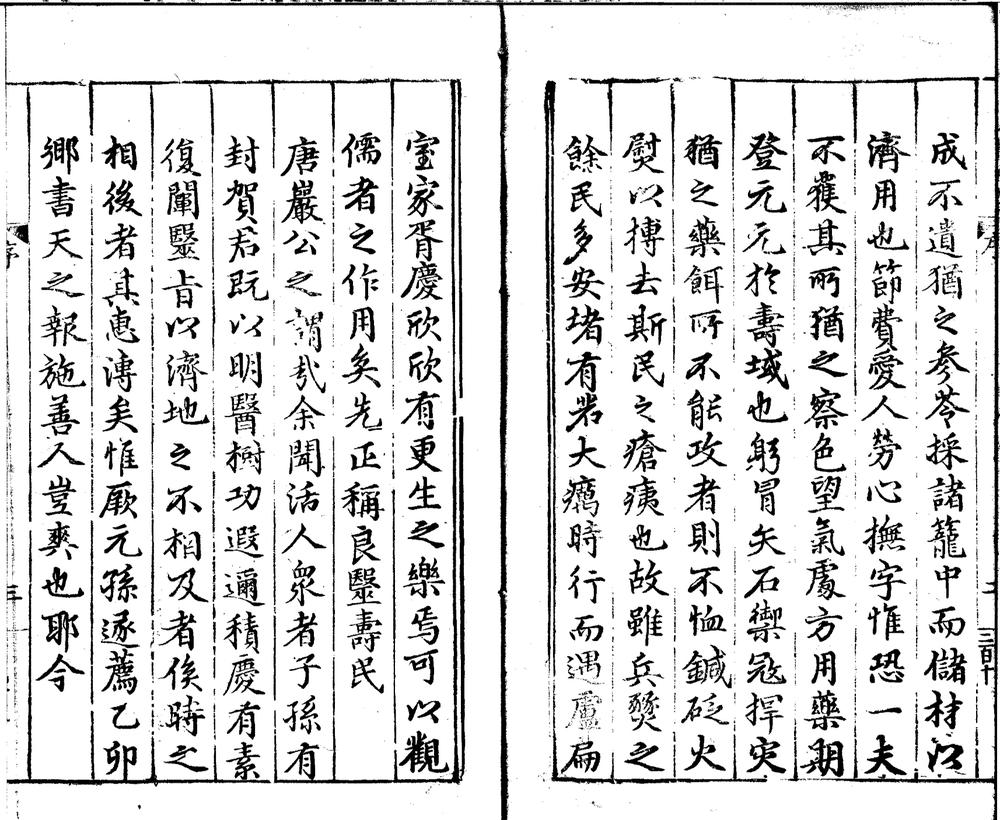 成不遺猶之參苓採諸籠中而儲材以
濟用也節費愛人勞心撫字惟恐一夫
不獲其所猶之察色望氣處方用藥期
登元元於壽域也躬冒矢石禦寇捍灾
猶之藥餌所不能攻者則不恤鍼砭火
熨以搏去斯民之瘡痍也故雖兵燹之
餘民多安堵有若大癘時行而遇盧扁
室家胥慶欣欣有更生之樂焉可以觀
儒者之作用矣先正稱良毉壽民
唐嚴公之謂哉余聞活人衆者子孫有
封賀君既以明醫樹功遐邇積慶有素
復闡毉旨以濟地之不相及者俟時之
相後者其惠溥矣惟厥元孫遂薦乙卯
鄉書天之報施善人豈爽也耶今
序
三